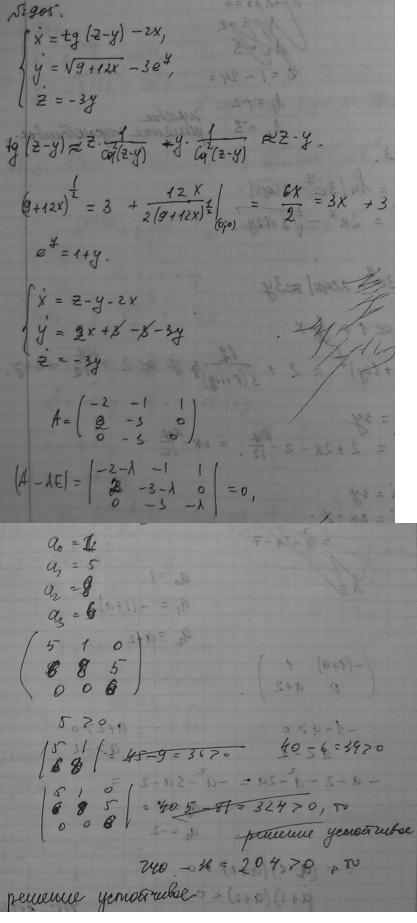 №905.
ẋ = tg(z-y) - 2x,
ẏ = √9+12x - 3e^y,
ż = -3y
tg(z-y) ≈ z · 1/cos²(z-y) + y · 1/cos²(z-y) ≈ z - y.
(9+12x)^1/2 = 3 + 12x/2(9+12x)^1/2 |(0,0) = 6x/2 = 3x + 3
e^y = 1+y.
ẋ = z - y - 2x
ẏ = 2x + 3 - 3 - 3y
ż = -3y
A = ( -2 -1 1
2 -3 0
0 -3 0 )
|A - λE| = | -2-λ -1 1
2 -3-λ 0
0 -3 -λ | = 0,
a₀ = 1
a₁ = 5
a₂ = 8
a₃ = 6
5 1 0
6 8 5
0 0 6
5 > 0.
| 5 1
6 8 | = 45 - 9 = 36 > 0 40 - 6 = 34 > 0
| 5 1 0
6 8 5
0 0 6 | = 405 - 81 = 324 > 0, то
решение устойчивое
240 - 36 = 204 > 0, то
решение устойчивое